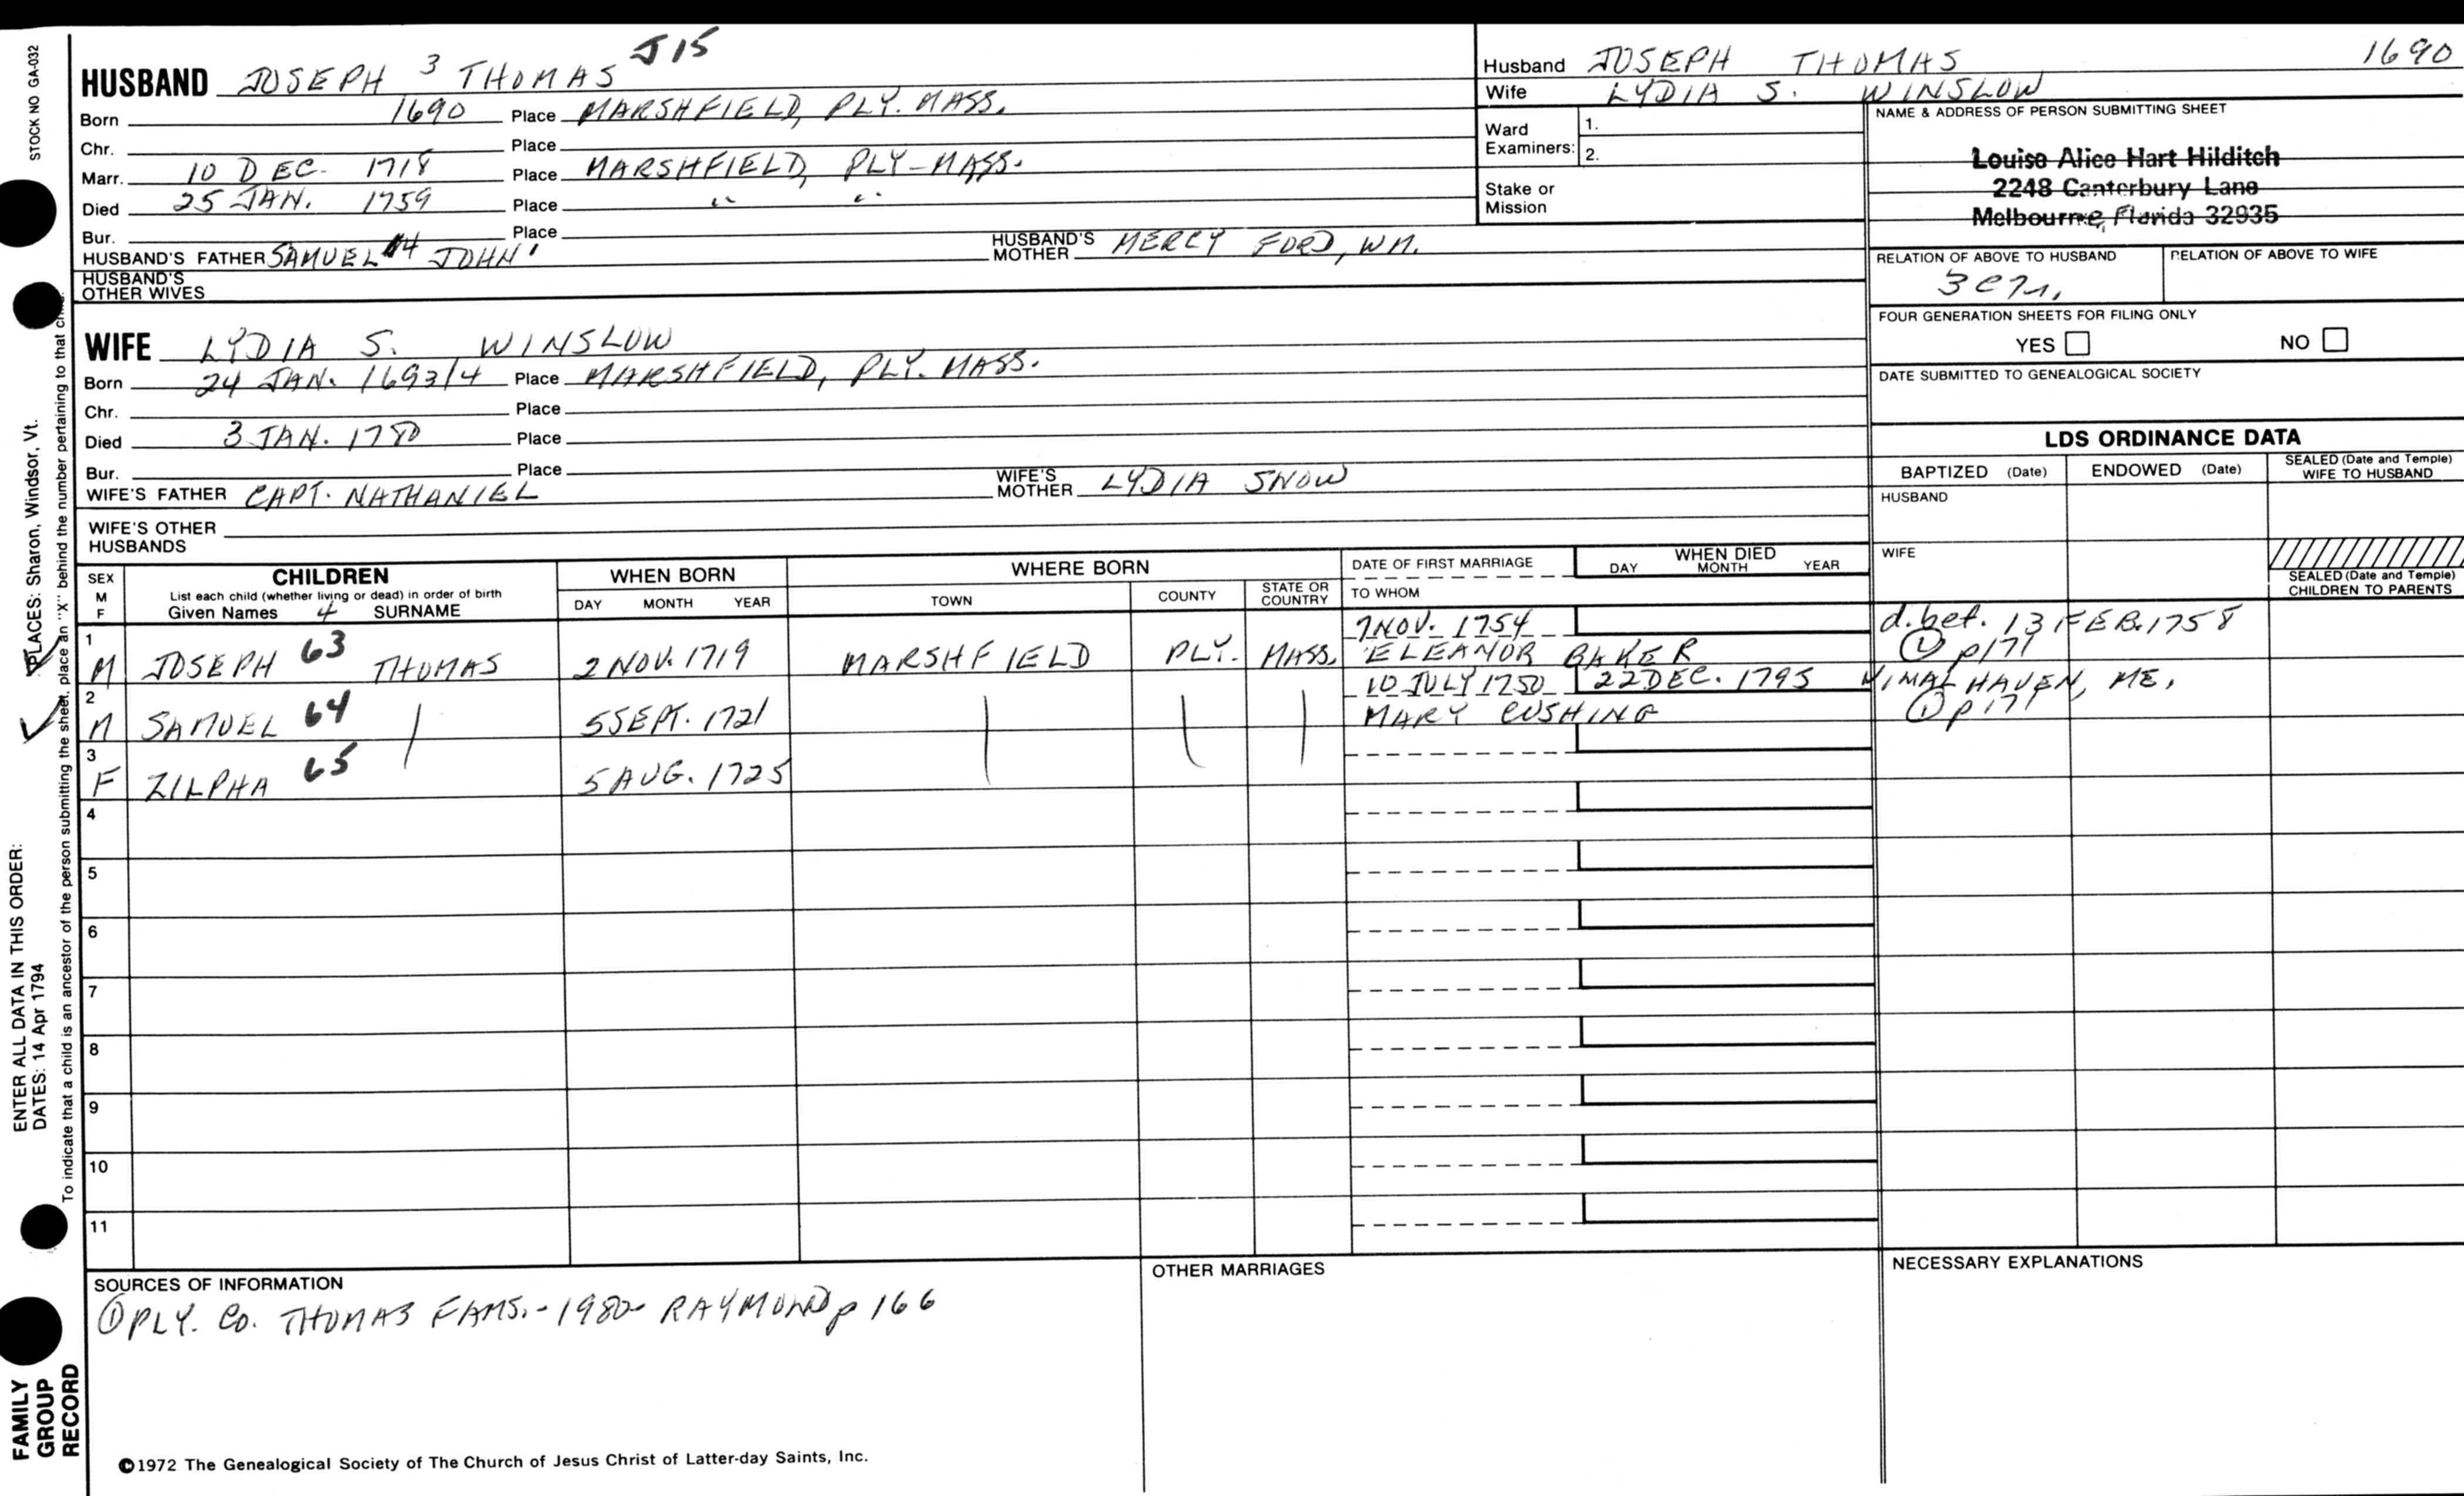 STOCK NO GA-032
J15
HUSBAND JOSEPH 3 THOMAS
Born 1690 Place MARSHFIELD, PLY. MASS.
Chr. Place
Marr. 10 DEC. 1718 Place MARSHFIELD, PLY-MASS.
Died 25 JAN. 1759 Place " "
Bur. Place
HUSBAND'S FATHER SAMUEL #4 JOHN' HUSBAND'S MOTHER MERCY FORD, WM.
HUSBAND'S OTHER WIVES
WIFE LYDIA S. WINSLOW
Born 24 JAN. 1693/4 Place MARSHFIELD, PLY. MASS.
Chr. Place
Died 3 JAN. 1780 Place
Bur. Place
WIFE'S FATHER CAPT. NATHANIEL WIFE'S MOTHER LYDIA SNOW
WIFE'S OTHER HUSBANDS
Husband JOSEPH THOMAS 1690
Wife LYDIA S. WINSLOW
Ward Examiners: 1.
2.
Stake or Mission
NAME & ADDRESS OF PERSON SUBMITTING SHEET
Louise Alice Hart Hilditch
2248 Canterbury Lane
Melbourne, Florida 32935
RELATION OF ABOVE TO HUSBAND RELATION OF ABOVE TO WIFE
FOUR GENERATION SHEETS FOR FILING ONLY
YES NO
DATE SUBMITTED TO GENEALOGICAL SOCIETY
LDS ORDINANCE DATA
BAPTIZED (Date) ENDOWED (Date) SEALED (Date and Temple) WIFE TO HUSBAND
HUSBAND
WIFE
SEALED (Date and Temple) CHILDREN TO PARENTS
SEX M F CHILDREN WHEN BORN WHERE BORN DATE OF FIRST MARRIAGE WHEN DIED
List each child (whether living or dead) in order of birth
Given Names 4 SURNAME DAY MONTH YEAR TOWN COUNTY STATE OR COUNTRY TO WHOM DAY MONTH YEAR
1 7 NOV. 1754 d. bet. 13 FEB. 1758
M JOSEPH 63 THOMAS 2 NOV. 1719 MARSHFIELD PLY. MASS. ELEANOR BAKER ① p171
2 10 JULY 1750 22 DEC. 1795 VIMALHAVEN, ME,
M SAMUEL 64 5 SEPT. 1721 MARY CUSHING ① p171
3
F ZILPHA 65 5 AUG. 1725
4
5
6
7
8
9
10
11
SOURCES OF INFORMATION
① PLY. CO. THOMAS FAMS. - 1980 - RAYMOND p 166
OTHER MARRIAGES
NECESSARY EXPLANATIONS
©1972 The Genealogical Society of The Church of Jesus Christ of Latter-day Saints, Inc.
FAMILY GROUP RECORD
ENTER ALL DATA IN THIS ORDER:
DATES: 14 Apr 1794
PLACES: Sharon, Windsor, Vt.
To indicate that a child is an ancestor of the person submitting the sheet, place an "X" behind the number pertaining to that